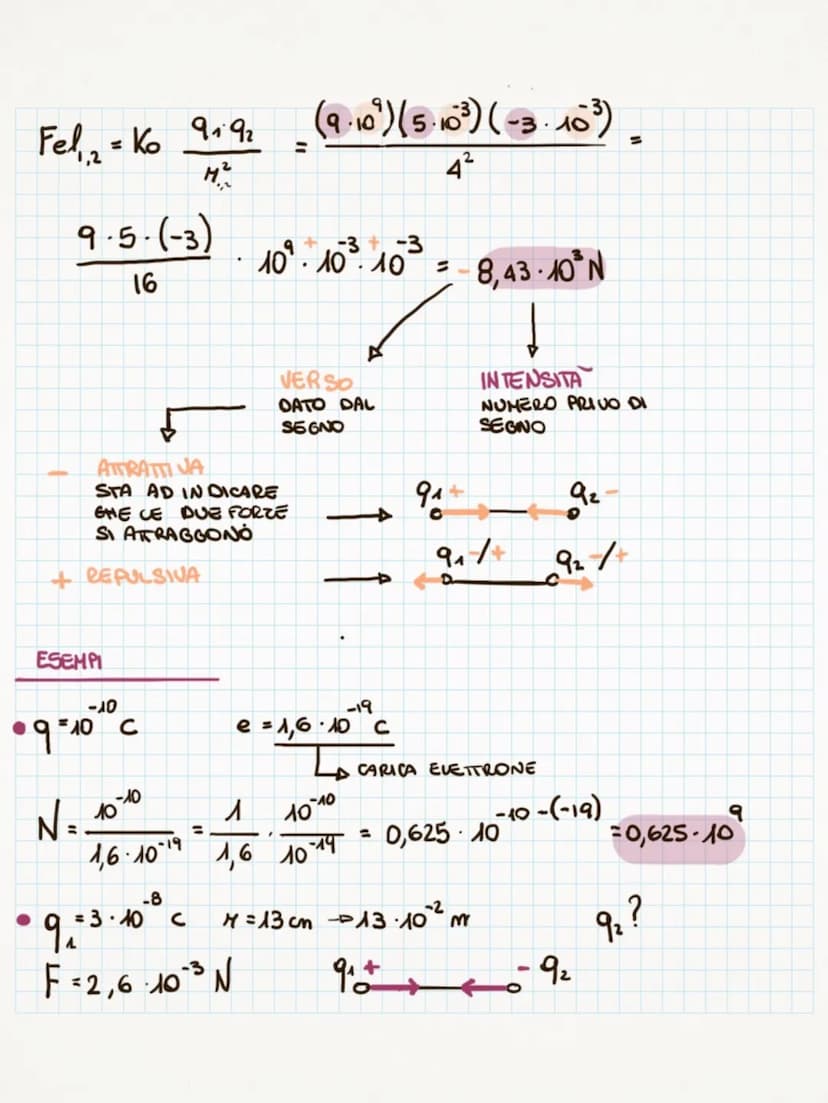 Fel₁,₂ = K₀ q₁·q₂/r₁,₂² = (9·10⁹)(5·10⁻³)(-3·10⁻³)/4² =
9·5·(-3)/16 · 10⁹ + · 10⁻³ + · 10⁻³ = - 8,43·10³ N
VERSO
DATO DAL
SEGNO
INTENSITÀ
NUMERO PRIVO DI
SEGNO
- ATTRATTIVA
STA AD INDICARE
CHE LE DUE FORZE
SI ATRAGGONO
q₁ + q₂ -
+ REPULSIVA
q₁ -/+ q₂ -/+
ESEMPI
• q = 10⁻¹⁰ C e = 1,6 · 10⁻¹⁹ C
CARICA ELETTRONE
N = 10⁻¹⁰/1,6·10⁻¹⁹ = 1/1,6 · 10⁻¹⁰/10⁻¹⁹ = 0,625 · 10⁻¹⁰ ⁻⁽⁻¹⁹⁾ = 0,625·10⁹
• q₁ = 3·10⁻⁸ C r = 13 cm → 13·10⁻² m q₂?
F = 2,6·10⁻³ N q₁ + - q₂